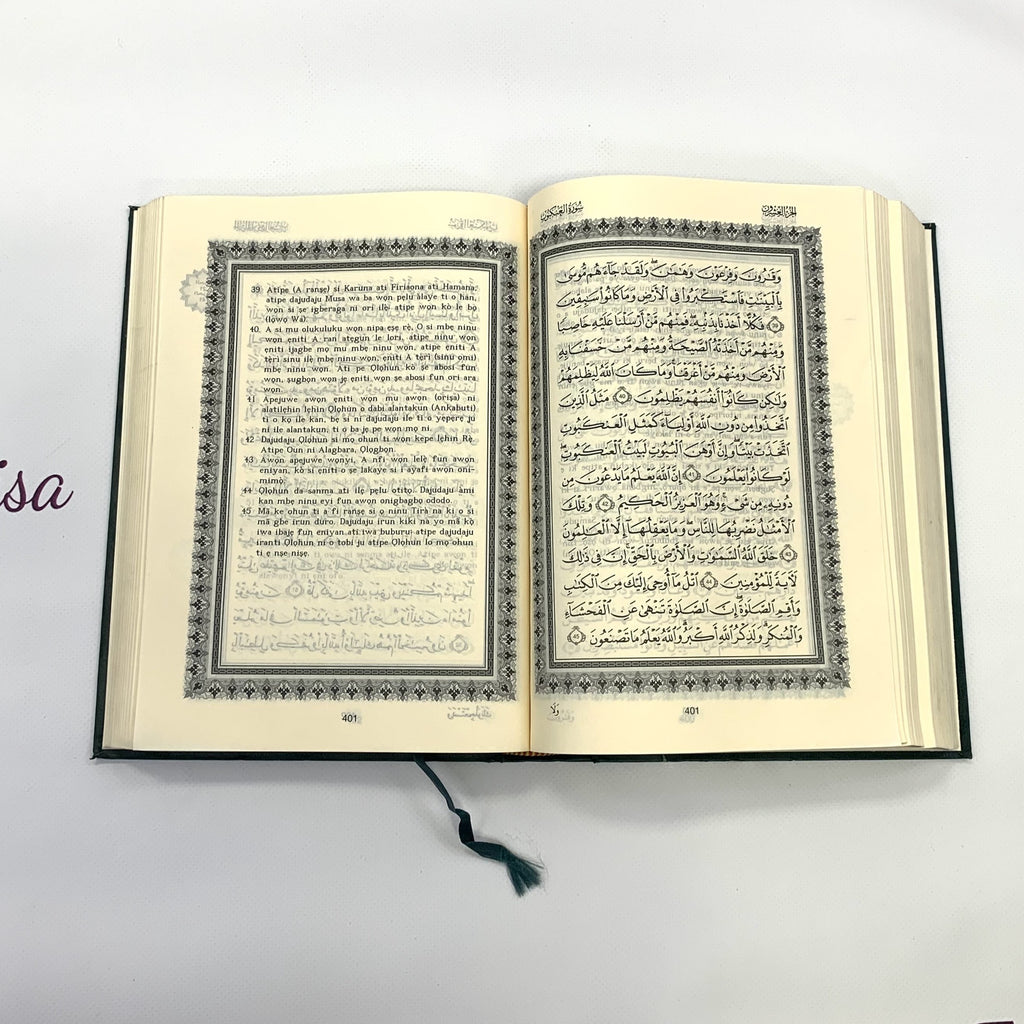 39. Atipe (A ranṣẹ) si Karuna ati Firiaona ati Hamana;
atipe dajudaju Musa wa ba wọn pẹlu alaye ti o han,
wọn si ṣe igberaga ni ori ilẹ; atipe wọn kò le bọ
(lọwọ Wa).
40. A si mu olukuluku wọn nipa ẹṣẹ rẹ̀, O si mbẹ ninu
wọn ẹniti A ran atẹgun le lori, atipe ninu wọn
ẹniti ijagbe mọ mu mbẹ ninu wọn, atipe ẹniti A
tẹ̀rì sinu ilẹ̀ mbẹ ninu wọn, ẹniti A tẹ̀ri (sinu omi)
mbẹ ninu wọn. Ati pe Ọlọhun kò ṣe abosi fun
wọn, ṣugbọn wọn jẹ ẹniti wọn ṣe abosi fun ori ara
wọn.
41. Apejuwe awọn ẹniti wọn mu awọn (oriṣa) ni
alatilẹhin lẹhin Ọlọhun o dabi alantakun (Ankabuti)
ti o kọ ile kan, bẹ si ni dajudaju ile ti o yẹpẹrẹ ju
ni ile alantakun, ti o ba jẹ pe wọn mọ ni.
42. Dajudaju Ọlọhun si mọ ohun ti wọn kepe lẹhin Rẹ̀.
Atipe Oun ni Alagbara, Ọlọgbọn.
43. Awọn apejuwe wọnyi, A nfi wọn lelẹ̀ fun awọn
eniyan, kò si ẹniti o ṣe lakaye si i ayafi awọn oni-
mimọ̀.
44. Ọlọhun da sanma ati ilẹ̀ pẹlu otitọ. Dajudaju ami
kan mbẹ ninu eyi fun awọn onigbagbọ ododo.
45. Mã ke ohun ti a fi ranṣẹ si ọ ninu Tira na ki o si
mã gbe irun duro. Dajudaju irun kiki na yo mã kọ̀
iwa ibajẹ fun eniyan ati iwa buburu; atipe dajudaju
iranti Ọlọhun ni o tobi ju atipe Ọlọhun lo mọ ohun
ti ẹ nṣe niṣẹ.
401
سُورَةُ العَنكَبُوتِ
الجزءُ العِشرُونَ
وَقَٰرُونَ وَفِرْعَوْنَ وَهَٰمَٰنَ ۖ وَلَقَدْ جَآءَهُم مُّوسَىٰ
بِٱلْبَيِّنَٰتِ فَٱسْتَكْبَرُوا۟ فِى ٱلْأَرْضِ وَمَا كَانُوا۟ سَٰبِقِينَ
﴿٣٩﴾ فَكُلًّا أَخَذْنَا بِذَنۢبِهِۦ ۖ فَمِنْهُم مَّنْ أَرْسَلْنَا عَلَيْهِ حَاصِبًا
وَمِنْهُم مَّنْ أَخَذَتْهُ ٱلصَّيْحَةُ وَمِنْهُم مَّنْ خَسَفْنَا بِهِ
ٱلْأَرْضَ وَمِنْهُم مَّنْ أَغْرَقْنَا ۚ وَمَا كَانَ ٱللَّهُ لِيَظْلِمَهُمْ
وَلَٰكِن كَانُوٓا۟ أَنفُسَهُمْ يَظْلِمُونَ ﴿٤٠﴾ مَثَلُ ٱلَّذِينَ
ٱتَّخَذُوا۟ مِن دُونِ ٱللَّهِ أَوْلِيَآءَ كَمَثَلِ ٱلْعَنكَبُوتِ
ٱتَّخَذَتْ بَيْتًا ۖ وَإِنَّ أَوْهَنَ ٱلْبُيُوتِ لَبَيْتُ ٱلْعَنكَبُوتِ ۖ
لَوْ كَانُوا۟ يَعْلَمُونَ ﴿٤١﴾ إِنَّ ٱللَّهَ يَعْلَمُ مَا يَدْعُونَ مِن
دُونِهِۦ مِن شَىْءٍ ۚ وَهُوَ ٱلْعَزِيزُ ٱلْحَكِيمُ ﴿٤٢﴾ وَتِلْكَ
ٱلْأَمْثَٰلُ نَضْرِبُهَا لِلنَّاسِ ۖ وَمَا يَعْقِلُهَآ إِلَّا ٱلْعَٰلِمُونَ
﴿٤٣﴾ خَلَقَ ٱللَّهُ ٱلسَّمَٰوَٰتِ وَٱلْأَرْضَ بِٱلْحَقِّ ۚ إِنَّ فِى ذَٰلِكَ
لَءَايَةً لِّلْمُؤْمِنِينَ ﴿٤٤﴾ ٱتْلُ مَآ أُوحِىَ إِلَيْكَ مِنَ ٱلْكِتَٰبِ
وَأَقِمِ ٱلصَّلَوٰةَ ۖ إِنَّ ٱلصَّلَوٰةَ تَنْهَىٰ عَنِ ٱلْفَحْشَآءِ
وَٱلْمُنكَرِ ۗ وَلَذِكْرُ ٱللَّهِ أَكْبَرُ ۗ وَٱللَّهُ يَعْلَمُ مَا تَصْنَعُونَ ﴿٤٥﴾
وَلَا
401
isa